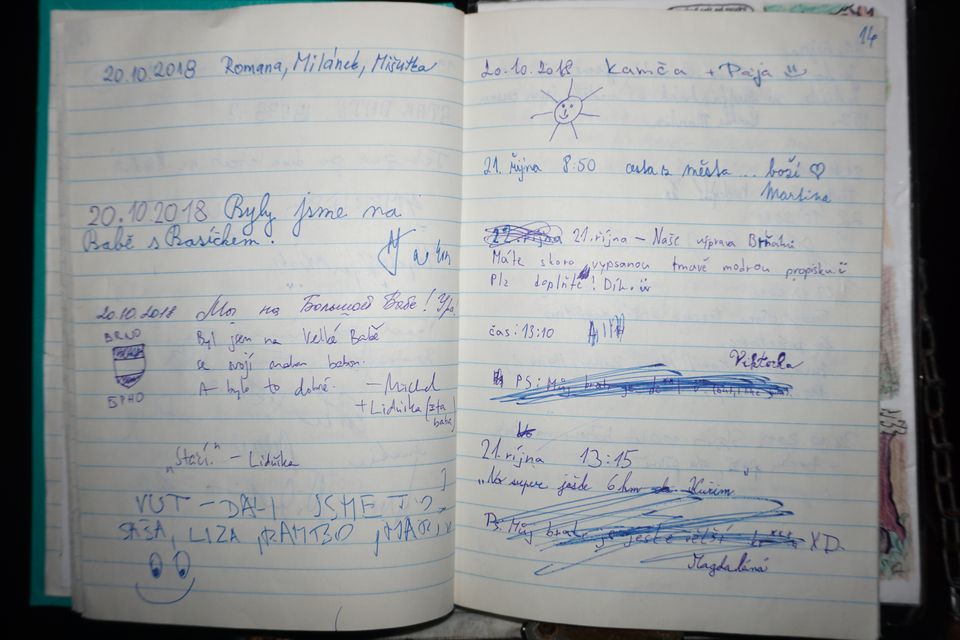 20.10.2018 Romana, Milánek, Mišutka
20.10.2018 Byly jsme na
Babě s Basíčkem.
20.10.2018 Мы на Большой Бабе! Ура
BRNO
Byl jsem na Velké Babě
se svojí malou babou.
БРНО
A bylo to dobré. — Michal
+ Liduška (ta baba)
„Stačí." – Liduška
VUT – DALI JSME TO
SAŠA, LIZA, RAMBO,
14
20.10.2018 Kamča + Pája
21. října 8:50 cesta z města ... boží ♡
Martina
22. října 21. října – Naše výprava Brňáků
Máte skoro vypsanou tmavě modrou propisku
Plz doplňte! Dík.
čas: 13:10
Viktorka
PS: Můj bratr je
21. října 13:15
„No super ještě 6 km Kuřim"
PS: Můj bratr je ještě větší XD
Magdaléna